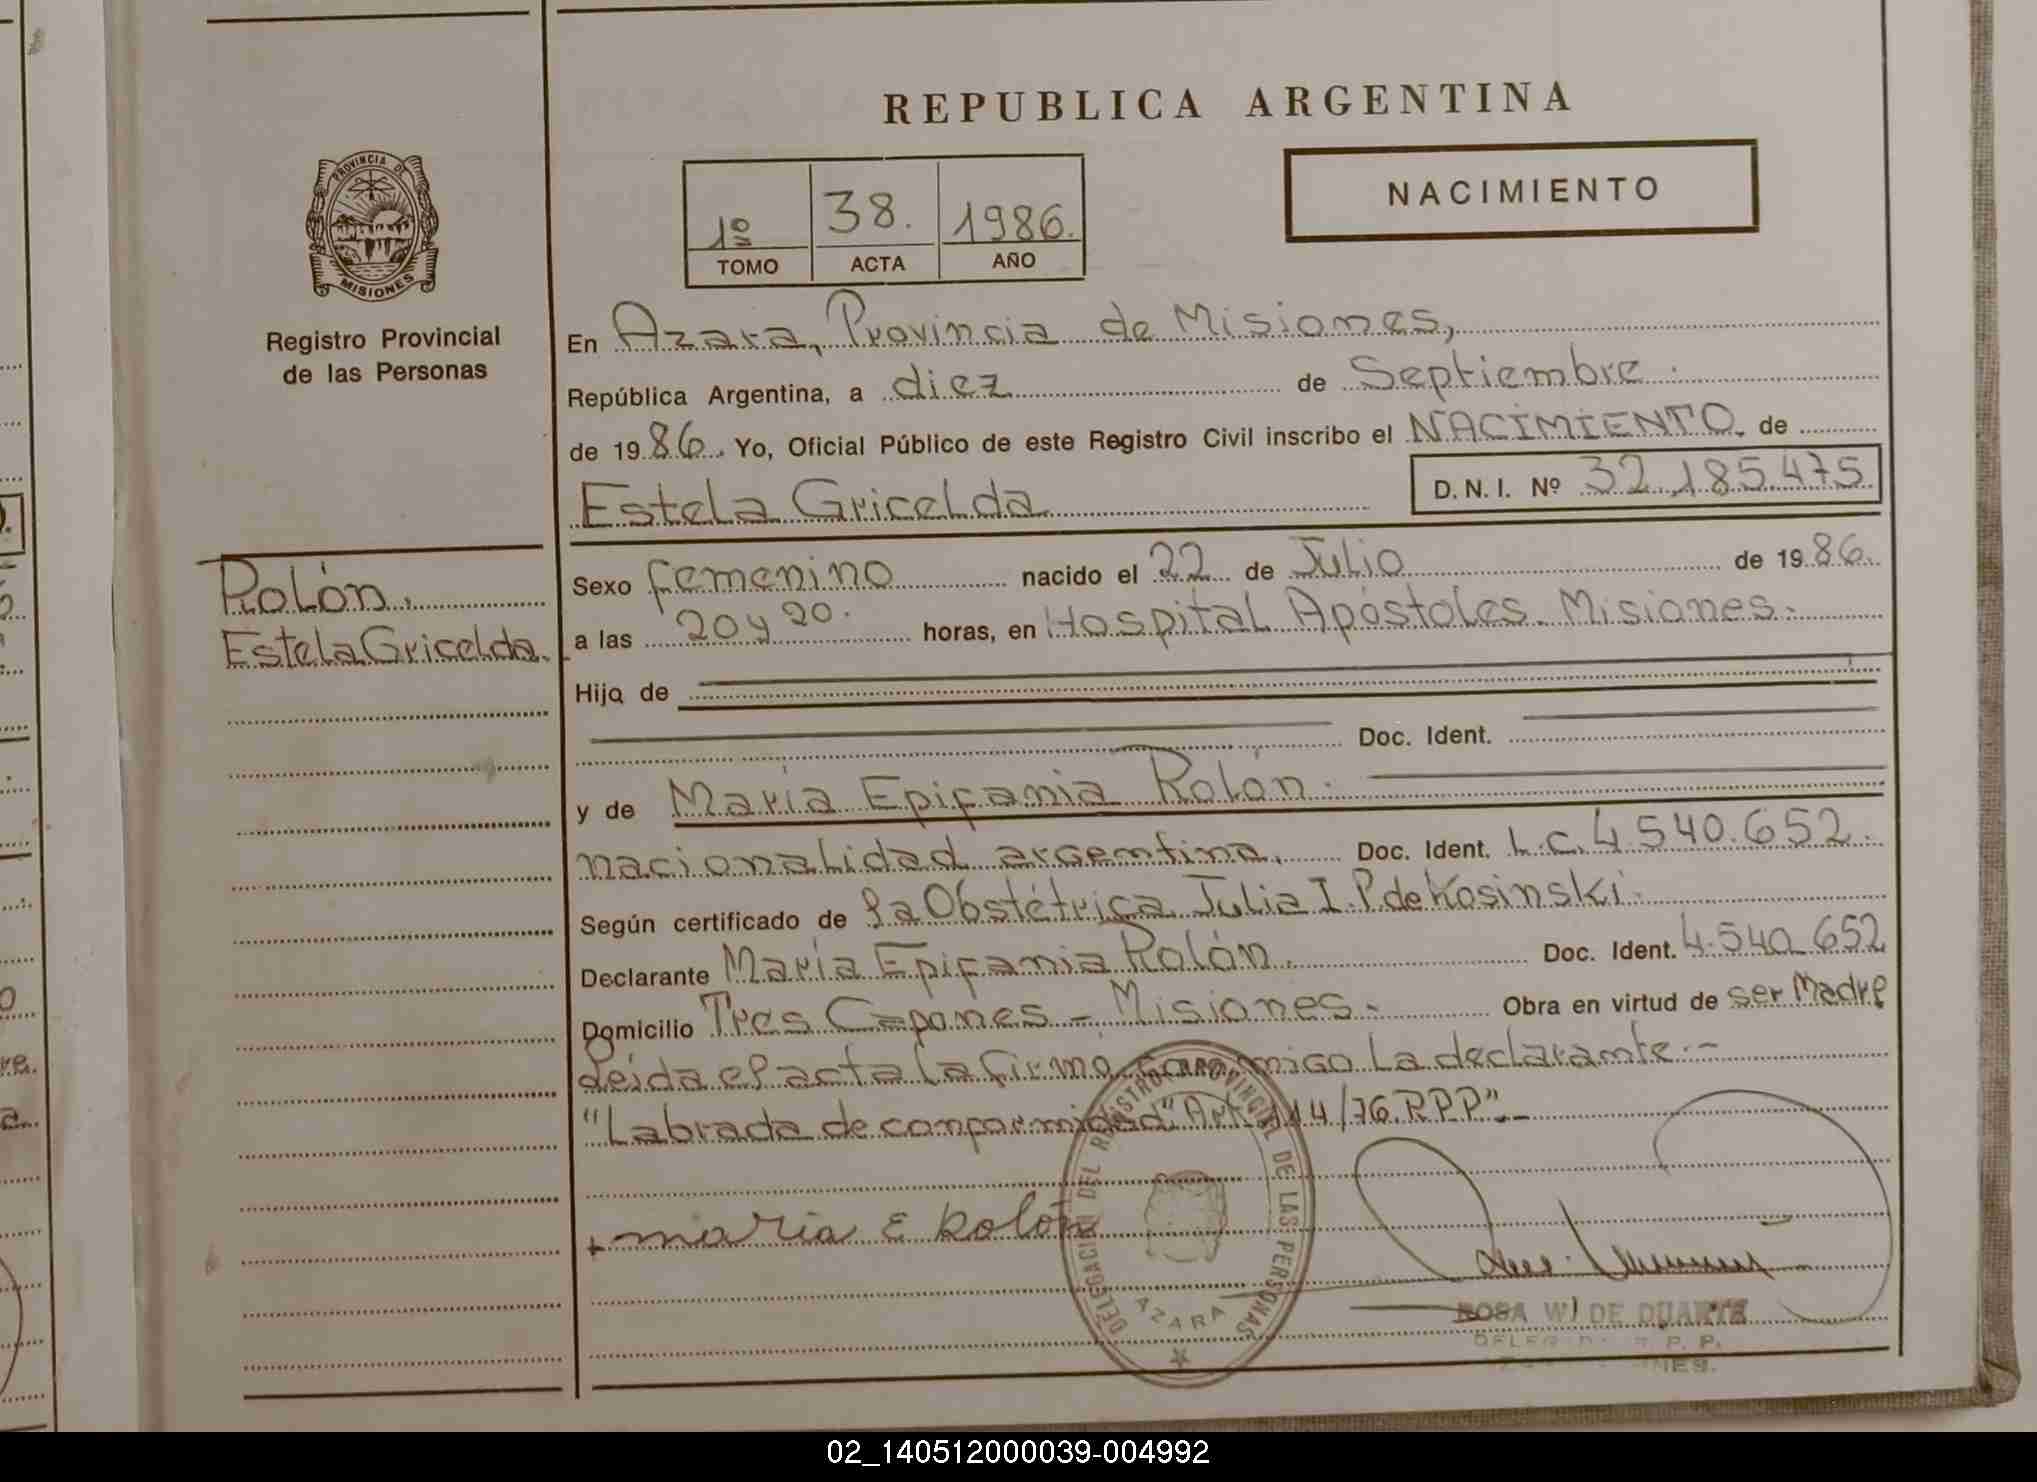 REPUBLICA ARGENTINA
PROVINCIA DE
MISIONES
Registro Provincial
de las Personas
1º 38. 1986.
TOMO ACTA AÑO
NACIMIENTO
En Azara, Provincia de Misiones,
República Argentina, a diez de Septiembre.
de 1986. Yo, Oficial Público de este Registro Civil inscribo el NACIMIENTO de
Estela Gricelda D.N.I. Nº 32.185.475
Rolón.
Estela Gricelda.
Sexo femenino nacido el 22 de Julio de 1986.
a las 20 y 20. horas, en Hospital Apóstoles. Misiones.
Hija de
Doc. Ident.
y de María Epifania Rolón.
nacionalidad argentina. Doc. Ident. L.C. 4.540.652.
Según certificado de la Obstétrica Julia I. P. de Kosinski.
Declarante María Epifania Rolón. Doc. Ident. 4.540.652
Domicilio Tres Capones - Misiones. Obra en virtud de ser Madre
leida el acta la firmó conmigo la declarante.-
"Labrada de conformidad" Art. 114/76.R.P.P".-
maria E Rolón
DELEGACION DEL REGISTRO PROVINCIAL DE LAS PERSONAS
AZARA
ROSA W) DE DUARTE
R. P. P.
02_140512000039-004992